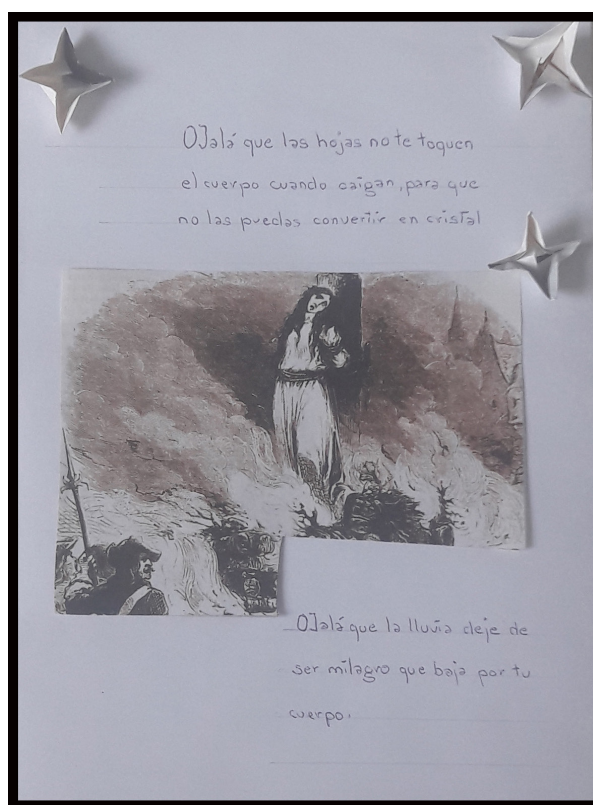 OJalá que las hojas no te toquen
el cuerpo cuando caigan, para que
no las puedas convertir en cristal
OJalá que la lluvia deje de
ser milagro que baja por tu
cuerpo.